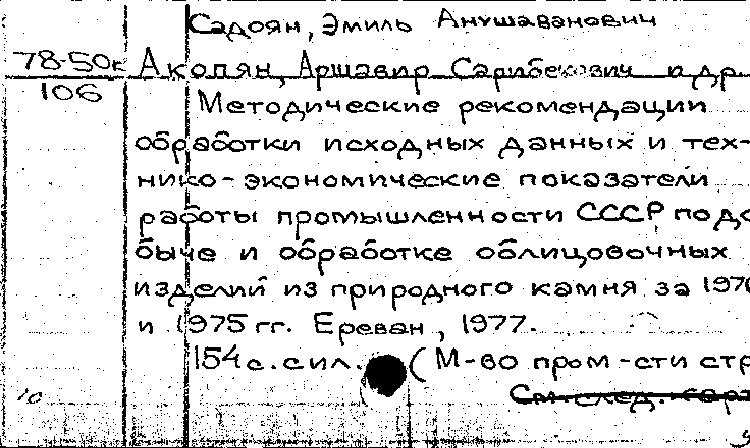 Садоян, Эмиль Анушаванович
78-50к
106
Акопян, Аршавир Сарибекович и др.
Методические рекомендации
обработки исходных данных и тех-
нико-экономические показатели
работы промышленности СССР по до
быче и обработке облицовочных
изделий из природного камня за 1970
и 1975 гг. Ереван, 1977.
154 с. с ил. (М-во пром-сти стр
10
См. след. карт